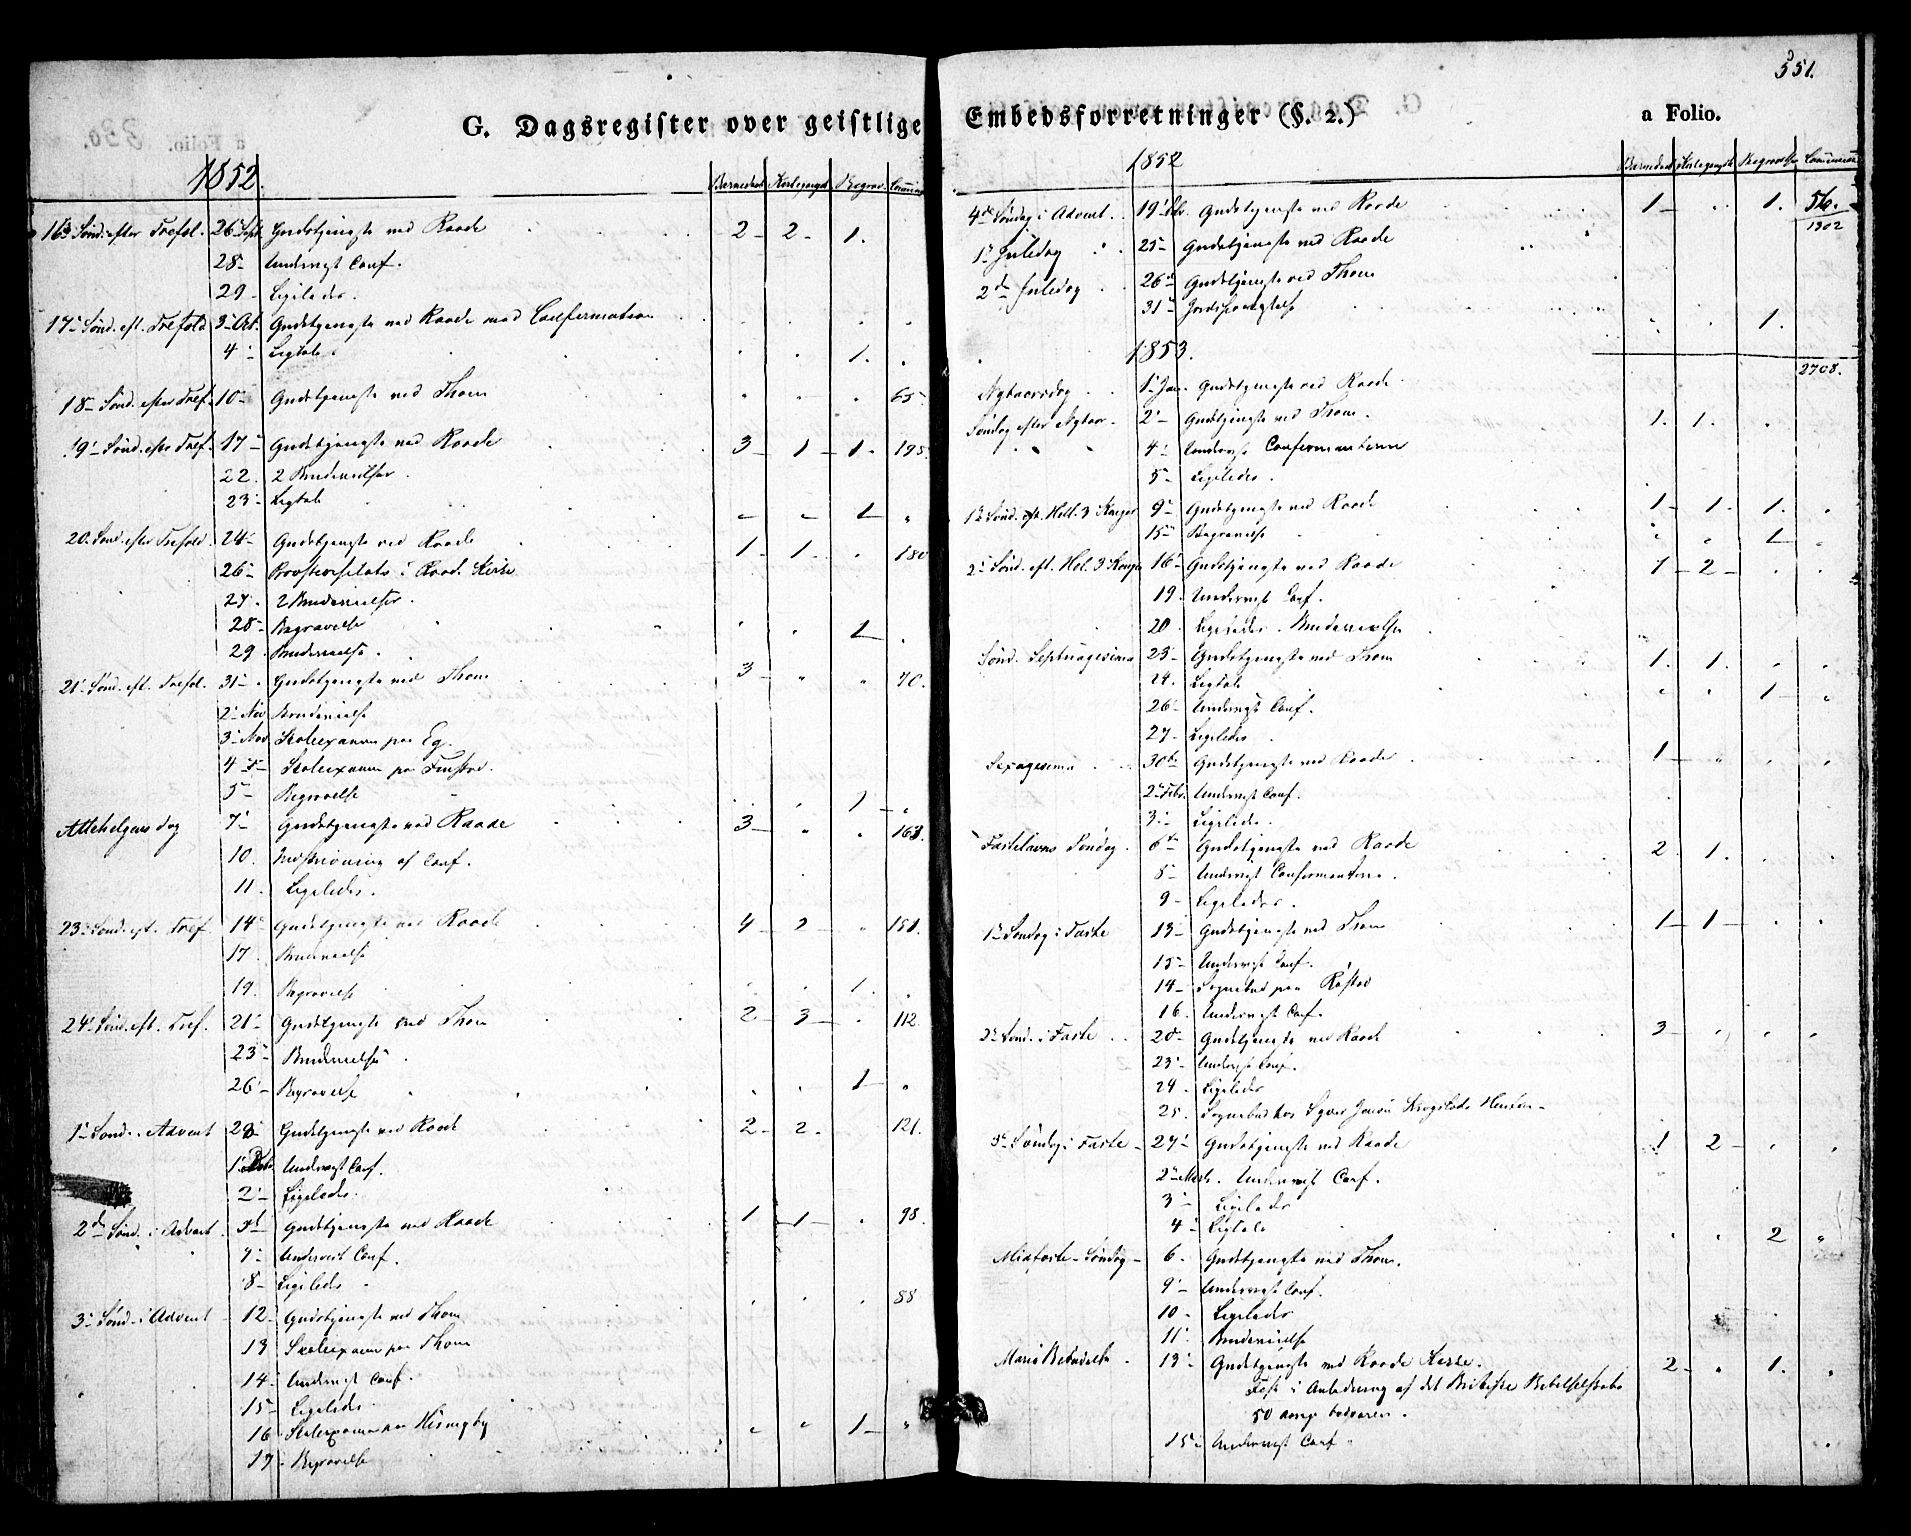 G. Dagsregister over geistlige
1852.
Barnedaab Kirkegangsk. Begrav. Commun.
16de Sönd. efter Trefol. 26 Sept. Gudstjeneste ved Raade 2 2 1.
28 Underviist Conf.
29 Ligeledes.
17 Sönd. eft. Trefold. 3 Oct. Gudstjeneste ved Raade med Confirmation
4 Ligtale 1.
18 Sönd. efter Tref. 10 Gudstjeneste ved Thom 65
19 Sönd. efter Tref. 17 Gudstjeneste ved Raade 3 1 1. 195.
22. 2 Brudevielser.
23 Ligtale 1
20. Sönd. efter Trefold. 24 Gudstjeneste ved Raade 1 1 180
26 Provstevisitats i Raad. Kirke
27. 2 Brudevielser.
28 Begravelse 1
29. Brudevielse.
21 Sönd. eft. Trefol. 31 Gudstjeneste ved Thom 3 70.
2 Nov Brudevielse
3 Nov. Skoleexamen paa Eg.
4 Skoleexamen paa Finstad.
5 Begravelse 1
Allehelgens dag 7 Gudstjeneste ved Raade 3 163.
10. Indskrivning af Conf.
11. Ligeledes.
23 Sönd. eft. Tref. 14 Gudstjeneste ved Raade 4 2 151.
17. Brudevielse
19. Begravelse 1.
24 Sönd. eft. Tref. 21 Gudstjeneste ved Thom 2 3 112
23 Brudevielse
26 Begravelse 1
1 Sönd. i Advent 28 Gudstjeneste ved Raade 2 2 121.
1 Dec. Underviist Conf.
2 Ligeledes.
2d Sönd. i Advent. 5d Gudstjeneste ved Raade 1 1 98.
7 Underviist Conf.
8 Ligeledes
3 Sönd. i Advent 12 Gudstjeneste ved Thom 88
13 Skoleexamen paa Thom
14 Underviist Conf.
15 Ligeledes
16 Skoleexamen paa Huseby
17 Begravelse 1
351.
Embedsforretninger (§. 2.) a Folio.
1852
Barnedaab Kirkegangsk. Begravelse Communic.
4de Söndag i Advent. 19 Dec. Gudstjeneste ved Raade 1 1. 56.
1302
1 Juledag 25 Gudstjeneste ved Raade
2d Juledag 26d Gudstjeneste ved Thom
31 Jordspaakastelse 1.
1853.
2708.
Nytaarsdag 1 Jan. Gudstjeneste ved Raade
Söndag efter Nytaar. 2 Gudstjeneste ved Thom. 1. 1.
4 Underviist Confirmanterne
5 Ligeledes.
1 Sönd. eft. Hell. 3 Konger 9 Gudstjeneste ved Raade 1 1. 1.
15 Begravelse 1
2 Sönd. eft. Hel. 3 Konger 16 Gudstjeneste ved Raade 1 2
19. Underviist Conf.
20. Ligeledes. Brudevielse
Sönd. Septuagesima 23 Gudstjeneste ved Thom 1. 1.
24. Ligtale 1
26 Underviist Conf.
27. Ligeledes
Sexagesima 30te Gudstjeneste ved Raade 1
2 Febr. Underviist Conf.
3 Ligeledes.
Fastelavns Söndag. 6te Gudstjeneste ved Raade 2 1.
8 Underviist Confirmanterne.
9 Ligeledes.
1 Söndag i Faste 13 Gudstjeneste ved Thom 1 1
15 Underviist Conf.
14 Sognebud paa Röstad
16. Underviist Conf.
2 Sönd. i Faste 20 Gudstjeneste ved Raade 3
23 Underviist Conf.
24. Ligeledes
25. Sognebud hos
3 Söndag i Faste 27 Gudstjeneste ved Raade 1 2
2 Marts. Underviist Conf.
3 Ligeledes
4 Ligtale 2
Midfaste Söndag 6. Gudstjeneste ved Thom.
9 Underviist Conf.
10 Ligeledes
11. Brudevielse
Mariæ Bebudelse 13 Gudstjeneste ved Raade Kirke. 2 1.
Fest i Anledning af det Britiske Bibelselskabs
50 aarige bestaaen.
15 Underviist Conf